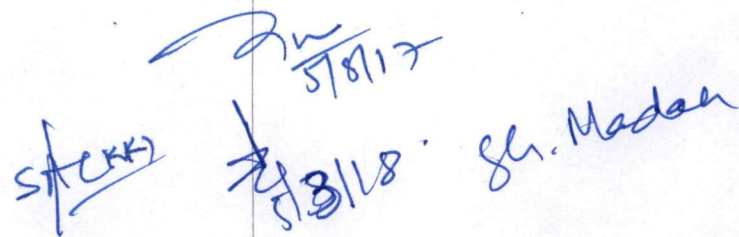 5/8/17
SA(KK) 5/3/18 Sh. Madan